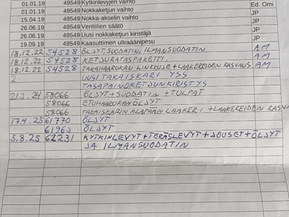 01.01.19 49549 Kytkinlevyjen vaihto
01.01.19 49549 Nokkaketjun vaihto Ed. Omi
01.01.19 49549 Nokka-akselin vaihto
20.01.19 49549 Venttiilien säätö
20.01.19 49549 Uusi nokkaketjun kiristäjä
19.09.19 49549 Kaasuttimen ultraäänipesu JP
18.12.22 54528 ÖLJYT, SUODATIN, ILMANSUODATIN AM
18.12.22 54528 KETJURATASPAKETTI AM
18.12.22 54528 TAKAHAARUKAN LINKKUJE + LAAKEREIDEN RASVAUS AM
UUSI TAKAISKARI YSS
TASAPAINOKETJUN KIRISTYS
21.3.24 58066 ÖLJYT + SUODATIN + TULPAT
58066 ETUHAARUKAN ÖLJYT
58066 TAKAISKARIN ALAPÄÄN LAAKERI + LAAKEREIDEN RASVA
17.4.25 61770 ÖLJYT
61963 ÖLJYT
5.8.25 62231 KYTKINLEVYT + TERÄSLEVYT + JOUSET + ÖLJYT
JA ILMANSUODATIN